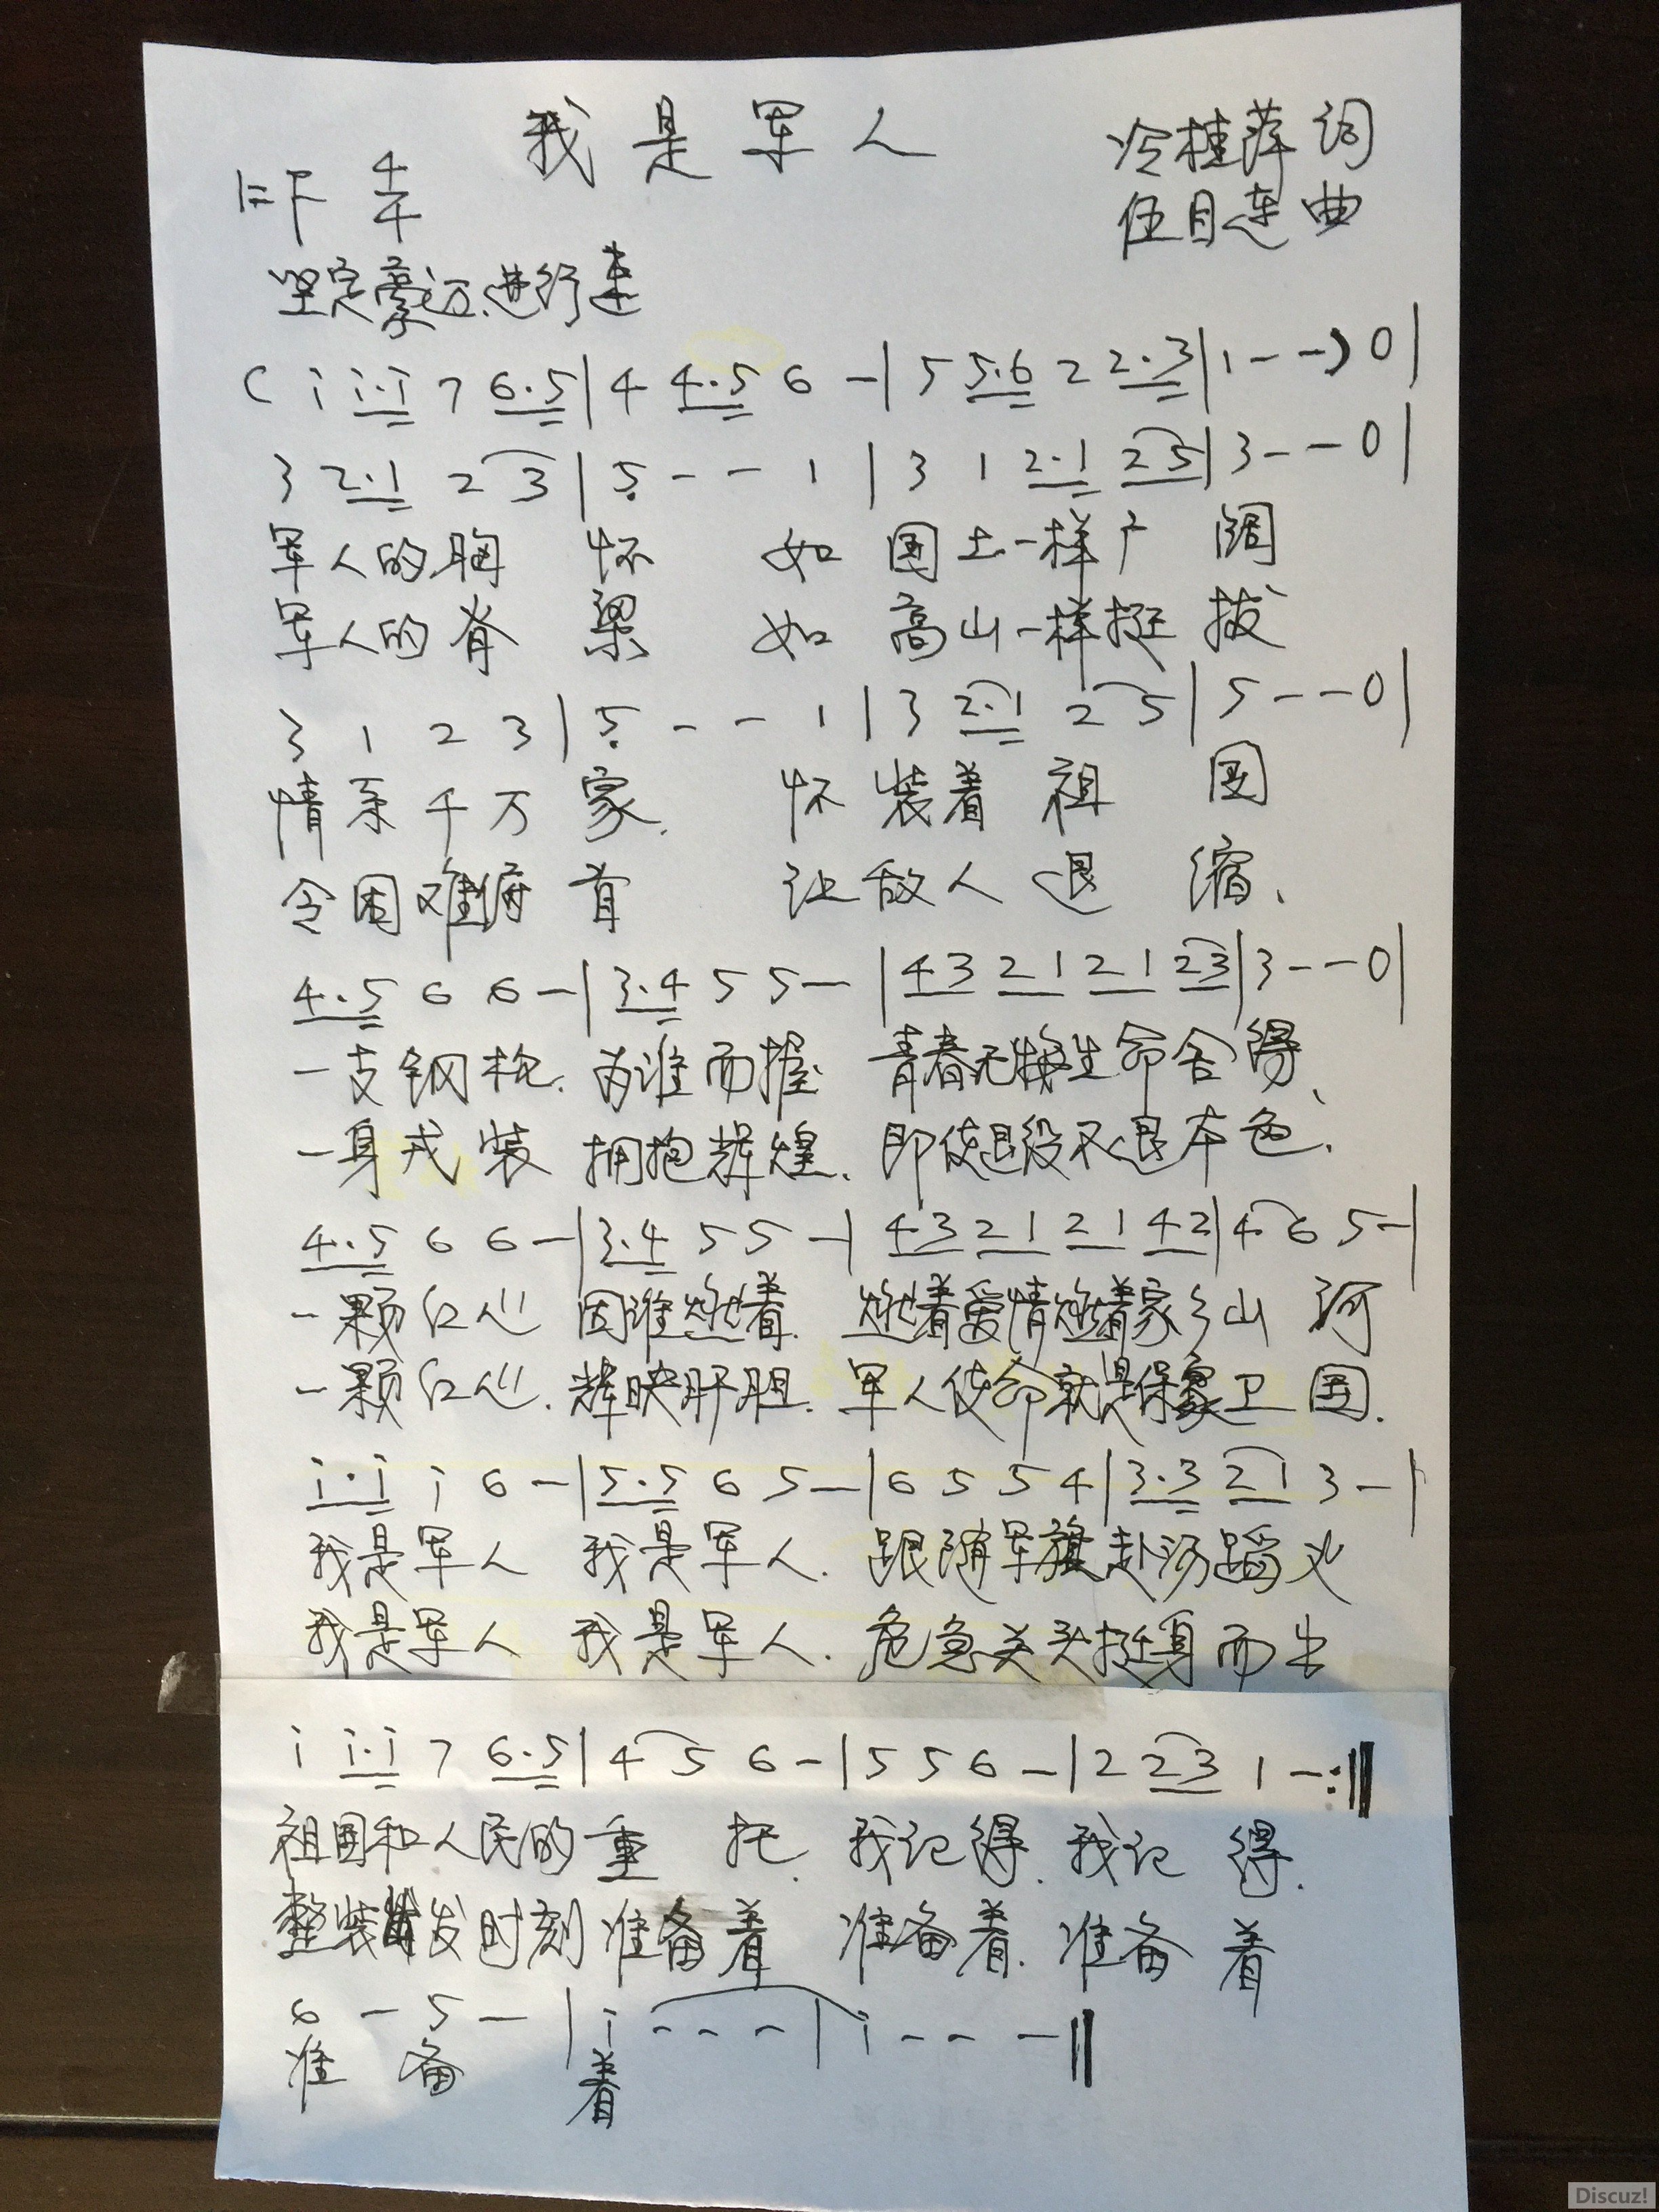 我是军人
冷桂萍词
1=F 4/4
伍目连曲
坚定豪迈、进行速
( i i·i 7 6·5 | 4 4·5 6 - | 5 5·6 2 2·3 | 1 - - ) 0 |
3 2·1 2 3 | 5 - - 1 | 3 1 2·1 2 5 | 3 - - 0 |
军人的胸 怀 如 国土一样广 阔
军人的脊 梁 如 高山一样挺 拔
3 1 2 3 | 5 - - 1 | 3 2·1 2 5 | 5 - - 0 |
情系千万 家. 怀 装着 祖 国
令困难俯 首 让 敌人 退 缩、
4·5 6 6 - | 3·4 5 5 - | 4 3 2 1 2 1 2 3 | 3 - - 0 |
一支钢枪. 为谁而握 青春无悔生命舍得、
一身戎装 拥抱辉煌. 即使退役不退本色.
4·5 6 6 - | 3·4 5 5 - | 4 3 2 1 2 1 4 3 | 4 6 5 - |
一颗红心 因谁燃着. 燃着爱情燃着家乡山 河
一颗红心. 辉映肝胆. 军人使命就是保家卫 国.
i·i i 6 - | 5·5 6 5 - | 6 5 5 4 | 3·3 2 1 3 - |
我是军人 我是军人. 跟随军旗赴汤蹈火
我是军人 我是军人. 危急关头挺身而出
i i·i 7 6·5 | 4 5 6 - | 5 5 6 - | 2 2 3 1 - :‖
祖国和人民的重 托. 我记得. 我记 得.
整装待发时刻准备着 准备着. 准备 着
6 - 5 - | i - - - | i - - - ‖
准 备 着
Discuz!